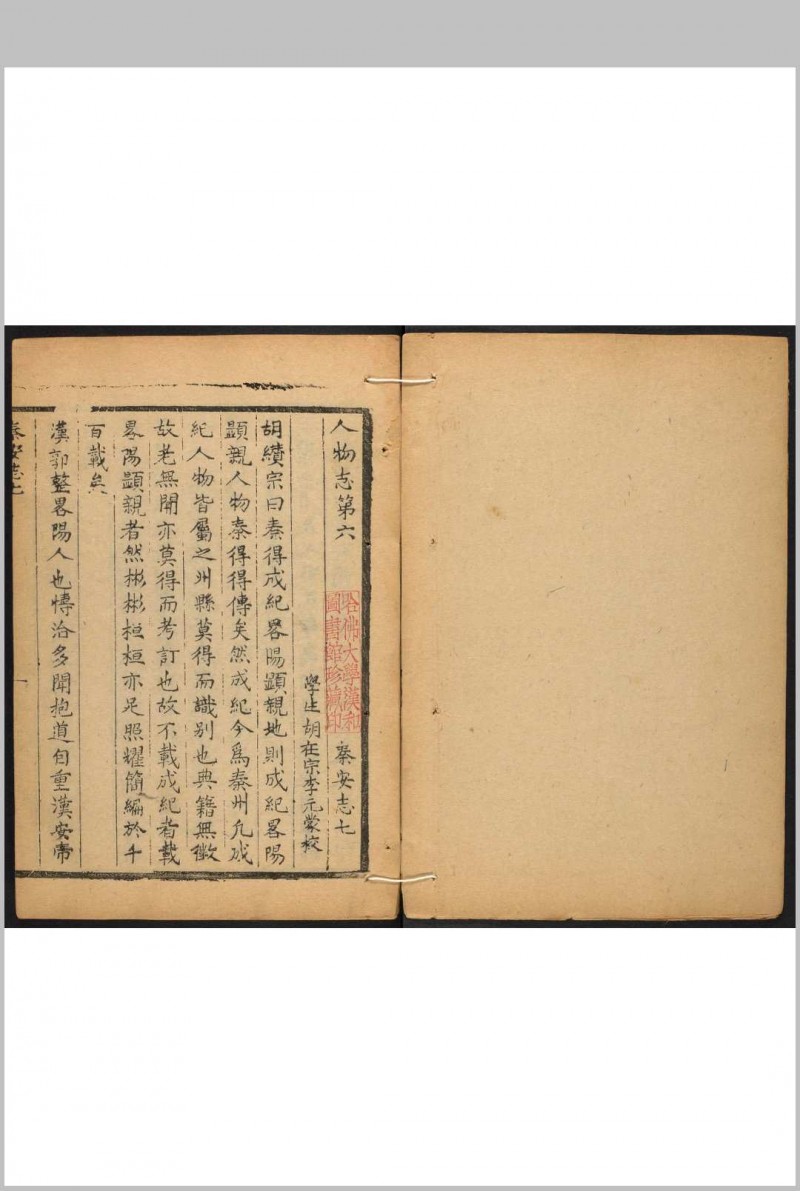 人物志第六 秦安志七
哈佛大學漢和
圖書館珍藏印
學生胡在宗李元蒙校
胡纘宗曰秦得成紀畧陽顯親地則成紀畧陽
顯親人物秦得得傳矣然成紀今爲秦州凢成
紀人物皆屬之州縣莫得而識别也典籍無徵
故老無聞亦莫得而考訂也故不載成紀者載
畧陽顯親者然彬彬桓桓亦足照耀簡編於千
百載矣
漢郭整畧陽人也愽洽多聞抱道自重漢安帝
秦安志七
一